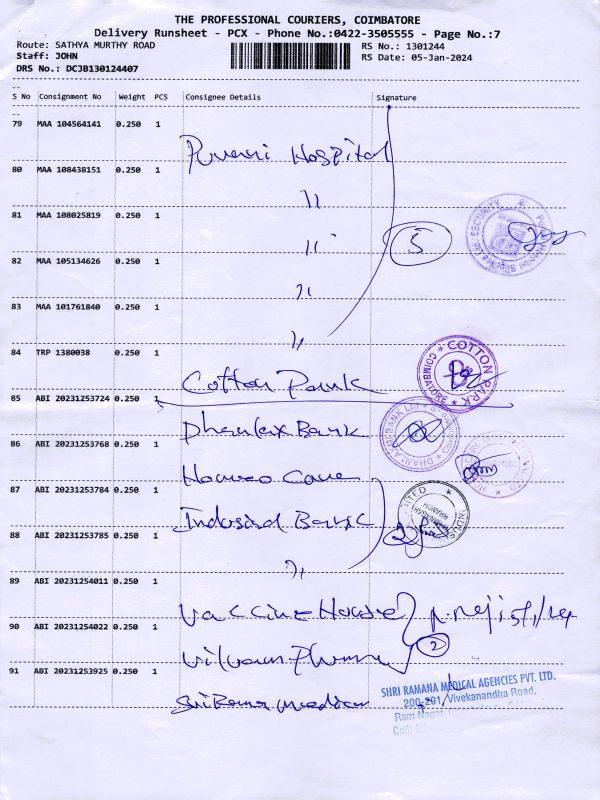 THE PROFESSIONAL COURIERS, COIMBATORE
Delivery Runsheet - PCX - Phone No.:0422-3505555 - Page No.:7
Route: SATHYA MURTHY ROAD RS No.: 1301244
Staff: JOHN RS Date: 05-Jan-2024
DRS No.: DCJB130124407
S No Consignment No Weight PCS Consignee Details Signature
79 MAA 104564141 0.250 1
Hospital
80 MAA 108438151 0.250 1
"
81 MAA 108025819 0.250 1
" 5
82 MAA 105134626 0.250 1
"
83 MAA 101761840 0.250 1
"
84 TRP 1380038 0.250 1
Cotton Park
COTTON PARK
COIMBATORE
85 ABI 20231253724 0.250 1
Dhanlax Bank
86 ABI 20231253768 0.250 1
Homeo Care
87 ABI 20231253784 0.250 1
Indusind Bank 2
88 ABI 20231253785 0.250 1
"
89 ABI 20231254011 0.250 1
Vaccine House
90 ABI 20231254022 0.250 1
2
91 ABI 20231253925 0.250 1
SHRI RAMANA MEDICAL AGENCIES PVT. LTD.
200-201, Vivekanandha Road,
Ram Nagar,